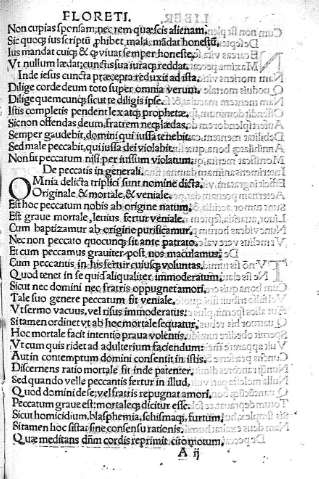 FLORETI.
Non cupias sponsam, nec rem quæscis alienam.
Sic quoqȝ ius scriptū, phibet mala, mādat honestū,
Ius mandat cuiqȝ & q̄ viuat semper honeste,
Vt nullum lædat: cunctis sua iuraqȝ reddat.
Inde iesus cuncta præcepta reduxit ad ista,
Dilige corde deum toto super omnia verum.
Dilige quemcunqȝ sicut te diligis ipse.
Istis complete pendent lex atqȝ prophetæ,
Sic non offendas deum, fratrem necqȝ lædas,
Semper gaudebit, domini qui iussa tenebit.
Sed male peccabit, qui iussa dei violabit.
Non sit peccatum nisi per iussum violatum.
De peccatis in generali.
OMnia delicta triplici sunt nomine dicta,
Originale & mortale, & veniale.
Est hoc peccatum nobis ab origine natum
Est graue mortale, leuius fertur veniale.
Cum baptizamur ab origine purificamur,
Nec non peccato quocunqȝ sit ante patrato.
Et cum peccamus grauiter post, nos maculamur:
Cum peccamus in his fertur cuiusqȝ voluntas.
Quod tenet in se quasi aliqualiter immoderatum,
Sicut nec domini nec fratris oppugnet amori.
Tale suo genere peccatum sit veniale.
Vt sermo vacuus, vel risus immoderatus:
Si tamen ordinet vt ab hoc mortale sequatur,
Hoc mortale facit intentio praua volentis.
Vt cum quis ridet ad adulterium faciendum:
Aut in contemptum domini consentit in istis.
Discernens ratio mortale sit inde patenter,
Sed quando velle peccantis fertur in illud,
Quod domini dese, vel fratris repugnat amori,
Peccatum graue est: mortaleqȝ dicitur esse.
Sicut homicidium, blasphemia, schismaqȝ, furtum,
Si tamen hoc sistat sine consensu rationis.
Quæ meditans dn̄m cordis reprimit cito motum,
A ij